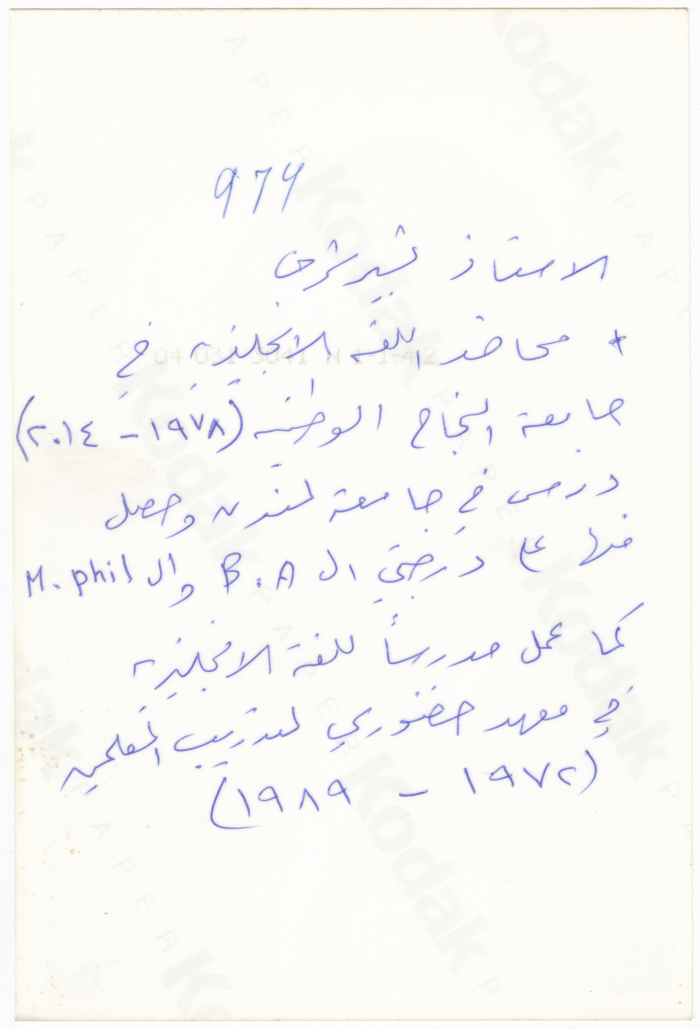 979
الاستاذ بشير شرف
+ محاضر اللغة الانجليزية في
جامعة النجاح الوطنية (١٩٧٨ - ٢٠١٤)
درس في جامعة لندن وحصل
منها على درجتي ال B.A وال M.phil
كما عمل مدرساً للغة الانجليزية
في معهد خضوري لتدريب المعلمين
(١٩٧٢ - ١٩٨٩)